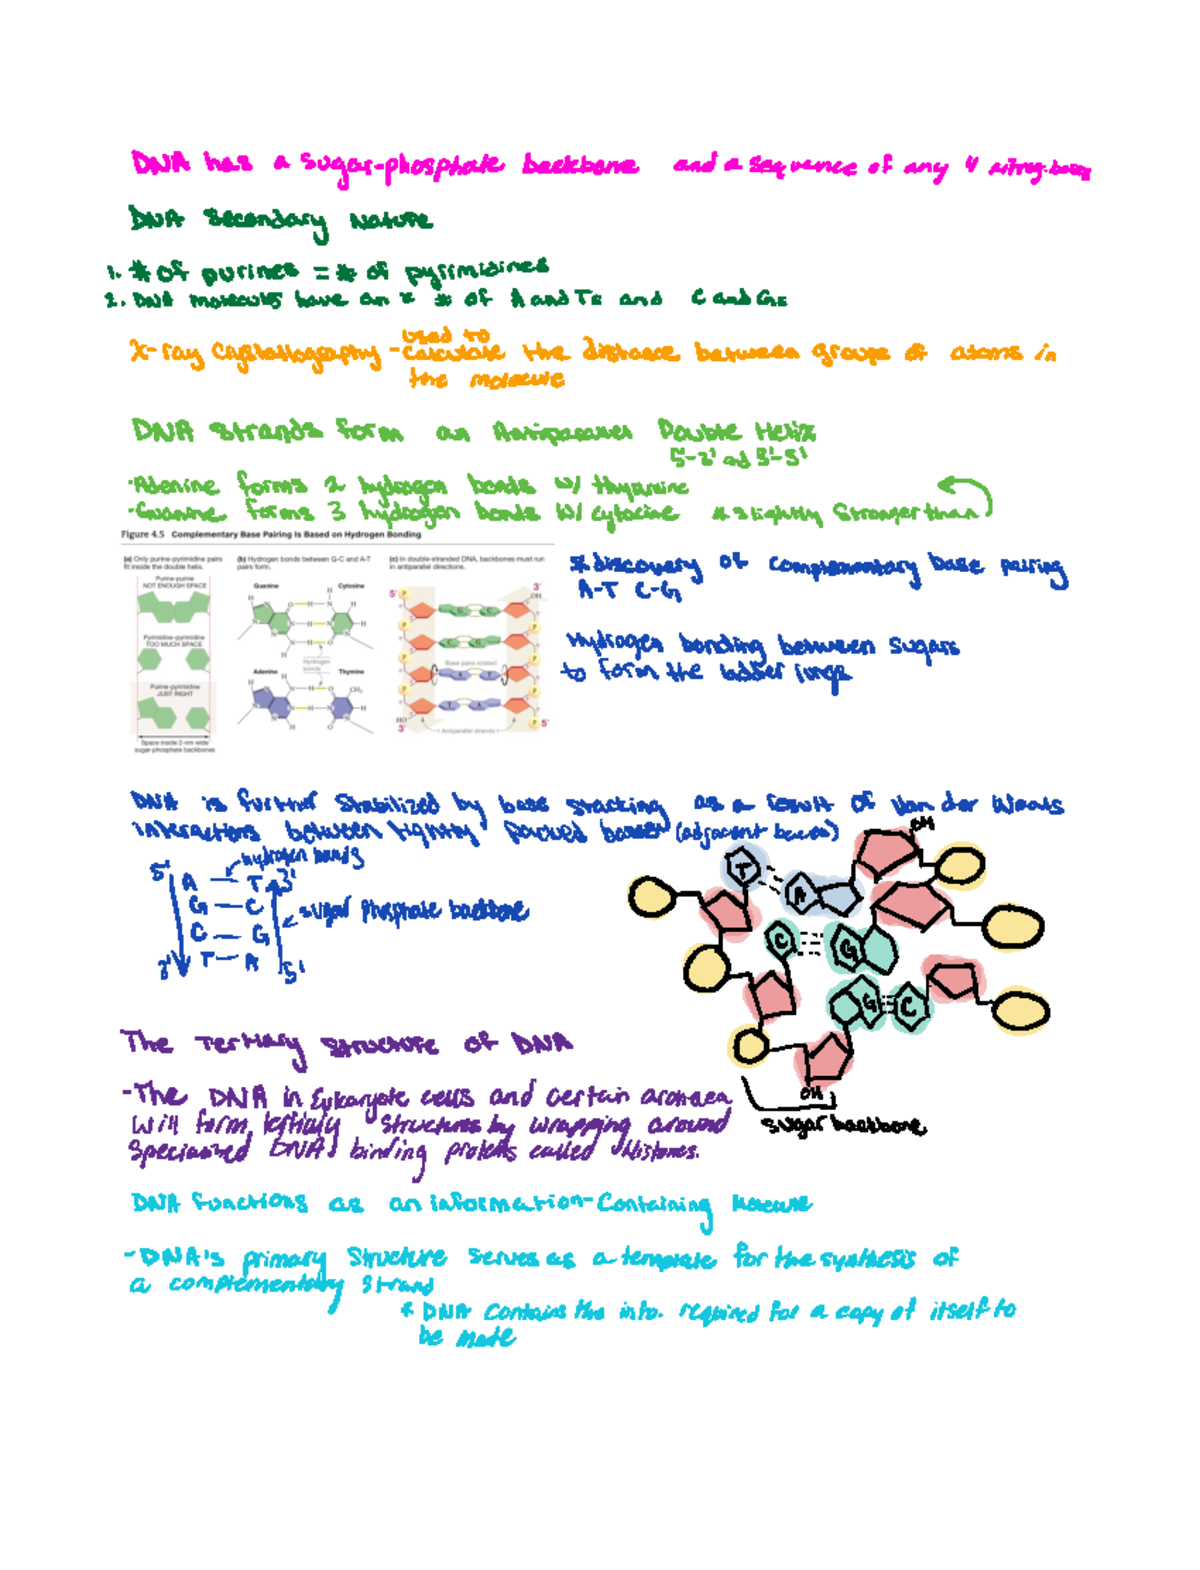 DNA has a sugar-phosphate backbone and a sequence of any 4 nitrog. bases
DNA Secondary Nature
1. # of purines = # of pyrimidines
2. DNA molecules have an = # of A and Ts and C and Gs
X-ray Crystallography - used to calculate the distance between groups of atoms in
the molecule
DNA strands form an Antiparallel Double Helix
5'-3' and 3'-5'
·Adenine forms 2 hydrogen bonds w/ thyamine
·Guanine forms 3 hydrogen bonds w/ cytocine * slightly stronger than
Figure 4.5 Complementary Base Pairing Is Based on Hydrogen Bonding
(a) Only purine-pyrimidine pairs
fit inside the double helix.
Purine-purine
NOT ENOUGH SPACE
Pyrimidine-pyrimidine
TOO MUCH SPACE
Purine-pyrimidine
JUST RIGHT
Space inside 2-nm wide
sugar-phosphate backbones
(b) Hydrogen bonds between G-C and A-T
pairs form.
Guanine Cytosine
Hydrogen
bonds
Adenine Thymine
(c) In double-stranded DNA, backbones must run
in antiparallel directions.
5' P 3'
OH
Base pairs rotated
HO
3' Antiparallel strands P 5'
* discovery of complementary base pairing
A-T C-G
Hydrogen bonding between sugars
to form the ladder
DNA is further stabilized by base stacking as a result of Van der Waals
interactions between tightly packed bases (adjacent bases)
hydrogen bonds
5' A — T 3'
G — C sugar phosphate backbone
C — G
3' T — A 5'
OH
T A
C G
G C
OH
sugar backbone
The Tertiary Structure of DNA
-The DNA in Eukaryote cells and certain archaea
will form tertiary structures by wrapping around
specialized DNA binding proteins called Histones.
DNA functions as an information-Containing Molecule
-DNA's primary structure serves as a template for the synthesis of
a complementary strand
* DNA contains the info. required for a copy of itself to
be made